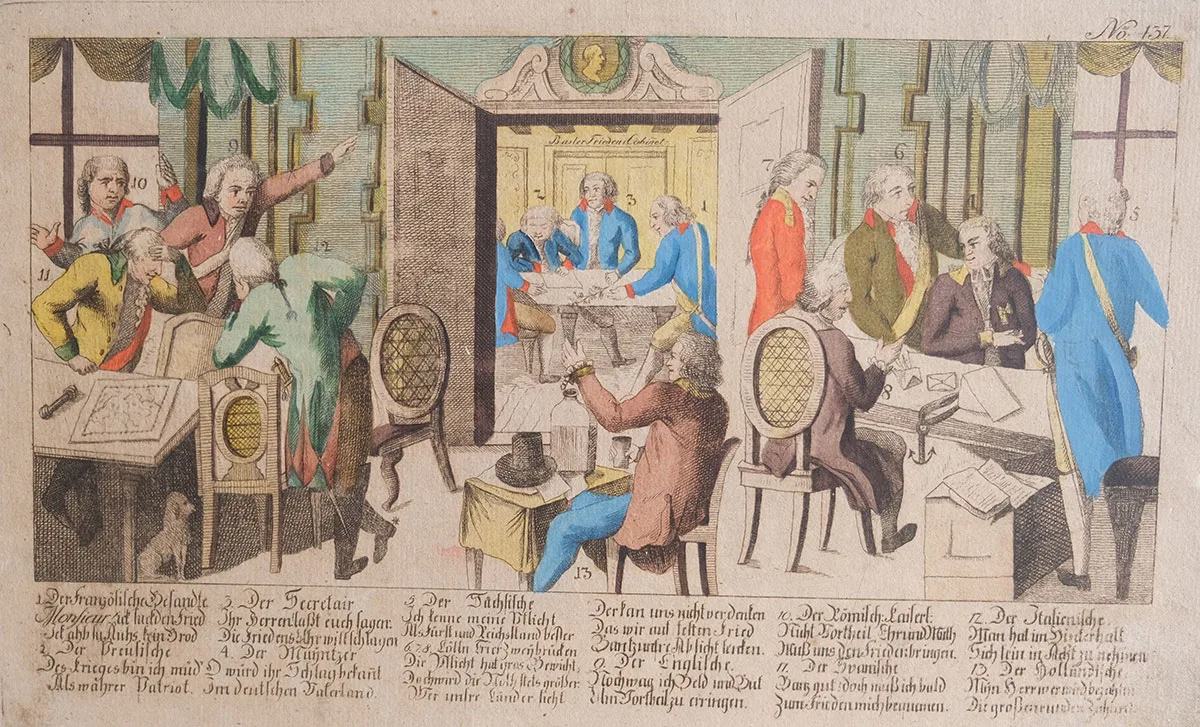 No. 437
Basler Frieden Cabinet
10
9
11
12
2
3
1
7
6
5
8
13
1. Der Französische Gesandte
Monsieur
2. Der Preusische
Des Krieges bin ich müd
Als währer Patriot.
3. Der Secretair
Ihr Herren laßt euch sagen
Die Friedens Uhr will schlagen
4. Der Mayntzer
O würd ihr Schlag bekant
Im deutschen Vaterland.
5. Der Sächsische
Ich kenne meine Pflicht
Als Fürst und Reichsstand besser
6. 7. 8. Cölln Trier Zweybrücken
Die Pflicht hat gros Gewicht
Doch ward die Noth stets größer
Wer unsre Länder sieht
Der kan uns nicht verdenken
Das wir auf festen Fried
9. Der Englische.
Noch wag ich Geld und Gut
Um Vortheil zu erringen.
10. Der Römisch Kaiserl.
Nicht Vortheil, Ehr und Muth
Muß uns den Frieden bringen.
11. Der Spanische
Ganz gut! doch muß ich bald
Zum Frieden mich bequemen.
12. Der Italienische
Man hat im Hinterhalt
Sich fein in Acht zu nehmen
13. Der Holländische
Mein Herr wer wird bezahlen
Die großen runden Zahlen